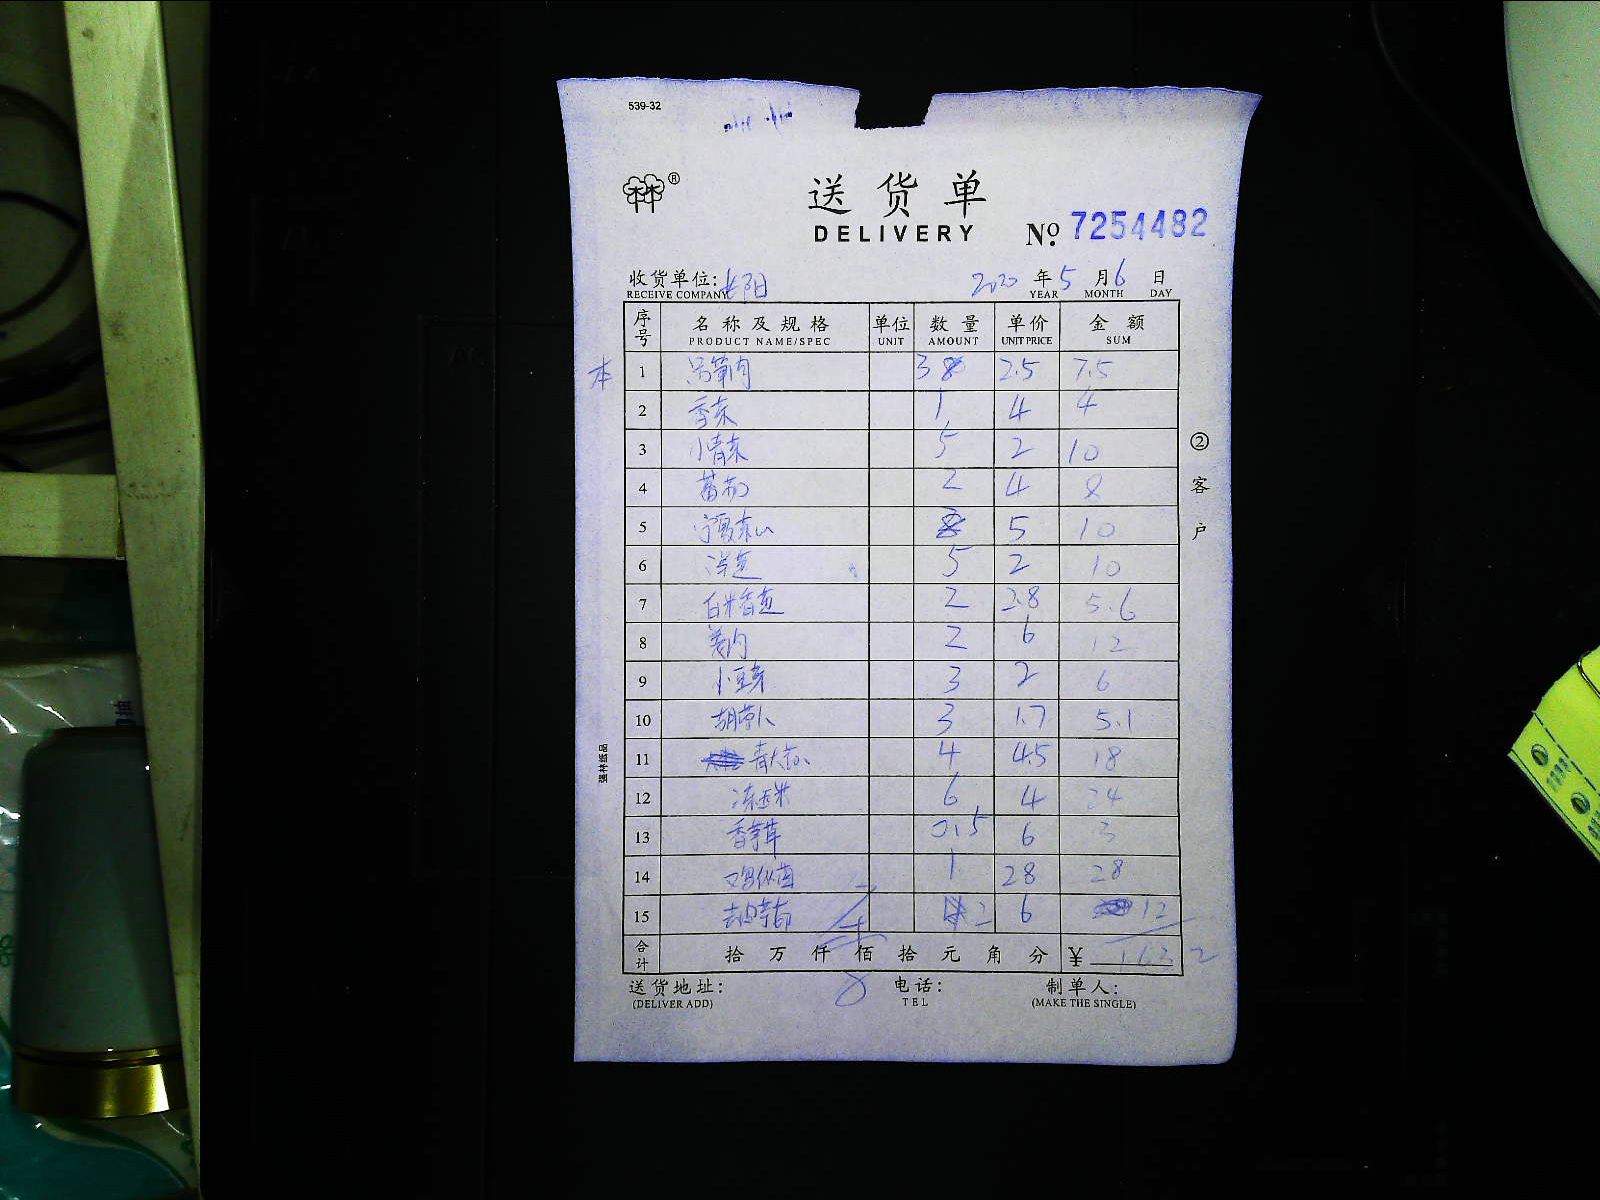 539-32
送货单
DELIVERY
№ 7254482
收货单位: 长阳 2020 年 5 月 6 日
RECEIVE COMPANY YEAR MONTH DAY
序号 名称及规格 单位 数量 单价 金额
PRODUCT NAME/SPEC UNIT AMOUNT UNIT PRICE SUM
本 1 3 2.5 7.5
2 1 4 4
3 小青菜 5 2 10
4 蕃茄 2 4 8
5 宁夏菜心 2 5 10
6 洋葱 5 2 10
7 2 2.8 5.6
8 2 6 12
9 小豆芽 3 2 6
10 胡萝卜 3 1.7 5.1
11 4 4.5 18
12 冻玉米 6 4 24
13 0.5 6 3
14 鸡枞菌 1 28 28
15 2 6 12
合计 拾万仟佰拾元角分 ¥ 163.2
送货地址: 电话: 制单人:
(DELIVER ADD) TEL (MAKE THE SINGLE)
②客户
强林纸品